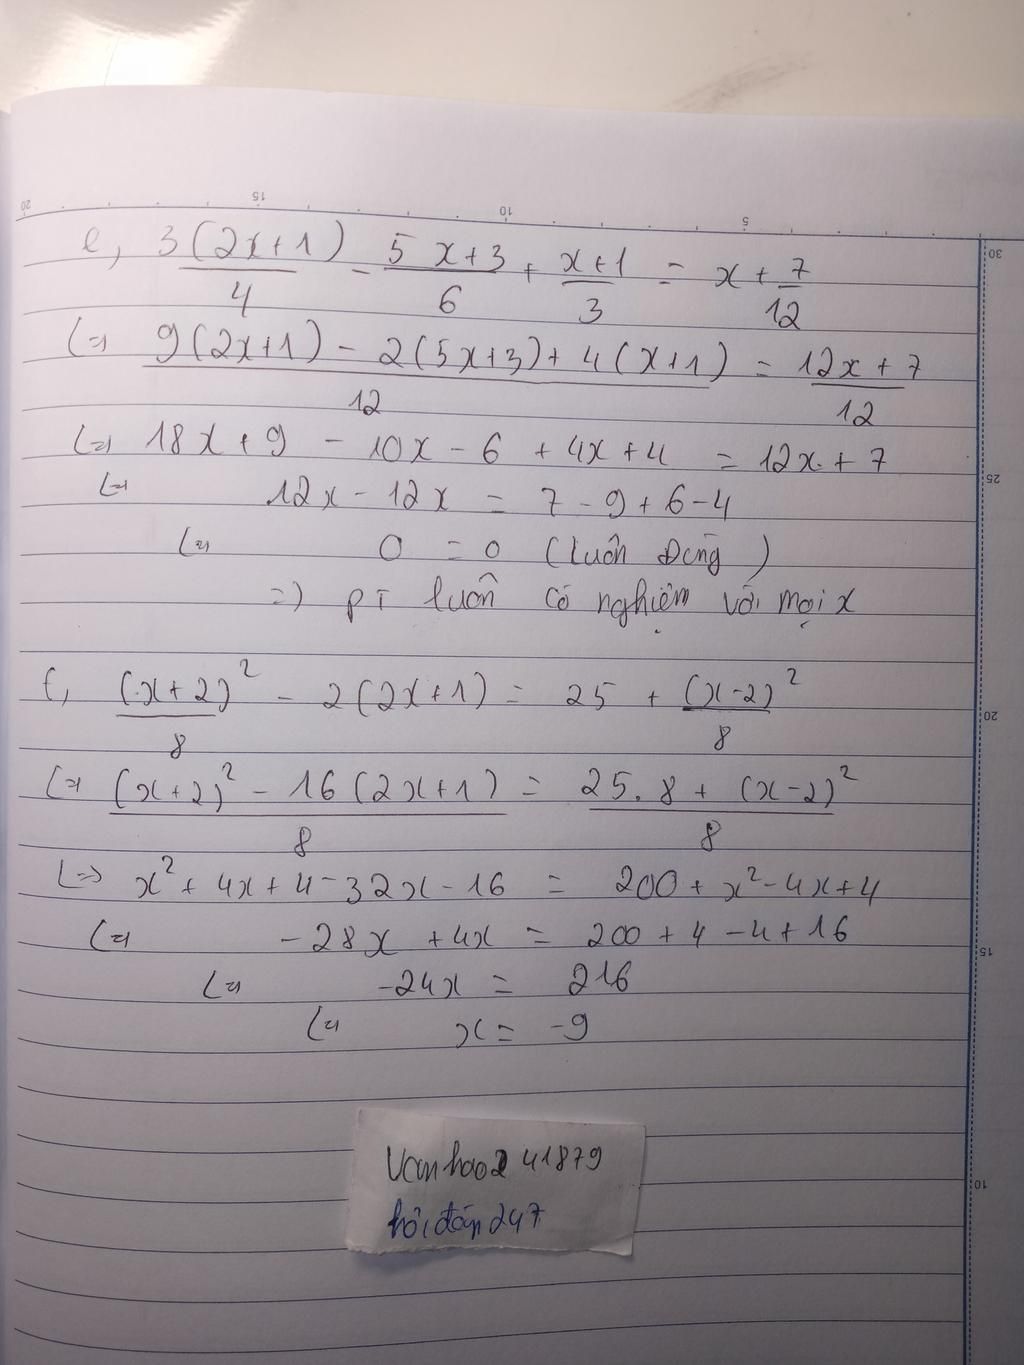 20 15 10 5
30
e, 3(2x+1)/4 - 5x+3/6 + x+1/3 = x + 7/12
(=) 9(2x+1) - 2(5x+3) + 4(x+1)/12 = 12x + 7/12
(=) 18x + 9 - 10x - 6 + 4x + 4 = 12x + 7
25
(=) 12x - 12x = 7 - 9 + 6 - 4
(=) 0 = 0 (luôn đúng)
=) PT luôn có nghiệm với mọi x
f, (x+2)²/8 - 2(2x+1) = 25 + (x-2)²/8
20
(=) (x+2)² - 16(2x+1)/8 = 25.8 + (x-2)²/8
(=) x² + 4x + 4 - 32x - 16 = 200 + x² - 4x + 4
(=) -28x + 4x = 200 + 4 - 4 + 16
15
(=) -24x = 216
(=) x = -9
Vanhao241879
10
hỏi đáp 247